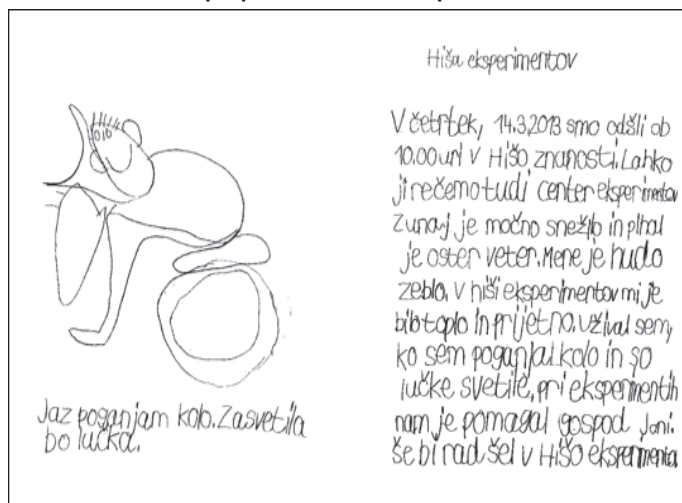 Jaz poganjam kolo. Zasvetila
bo lučka.
Hiša eksperimentov
V četrtek, 14.3.2013 smo odšli ob
10.00 uri v Hišo znanosti. Lahko
ji rečemo tudi center eksperimentov
Zunaj je močno snežilo in pihal
je oster veter. Mene je hudo
zeblo. V hiši eksperimentov mi je
bilo toplo in prijetno. Užival sem,
ko sem poganjal kolo in so
lučke svetile, pri eksperimentih
nam je pomagal gospod
še bi rad šel v Hišo eksperimentov